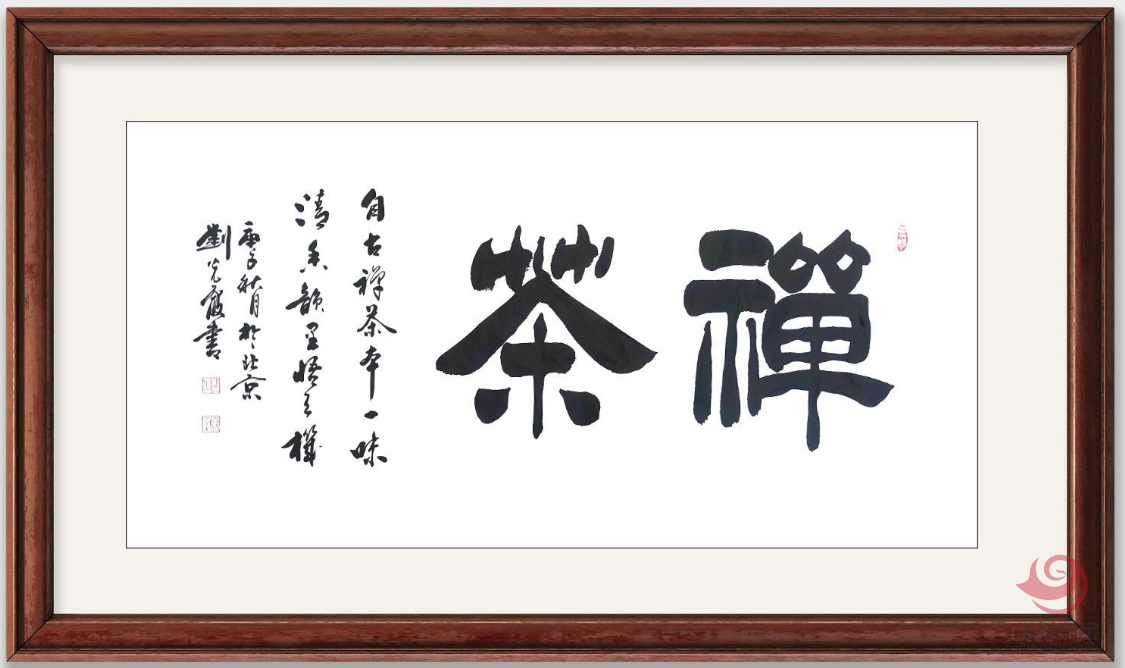 禪茶
自古禪茶本一味
清香韻里悟玄機
庚子秋月於北京
劉光霞書